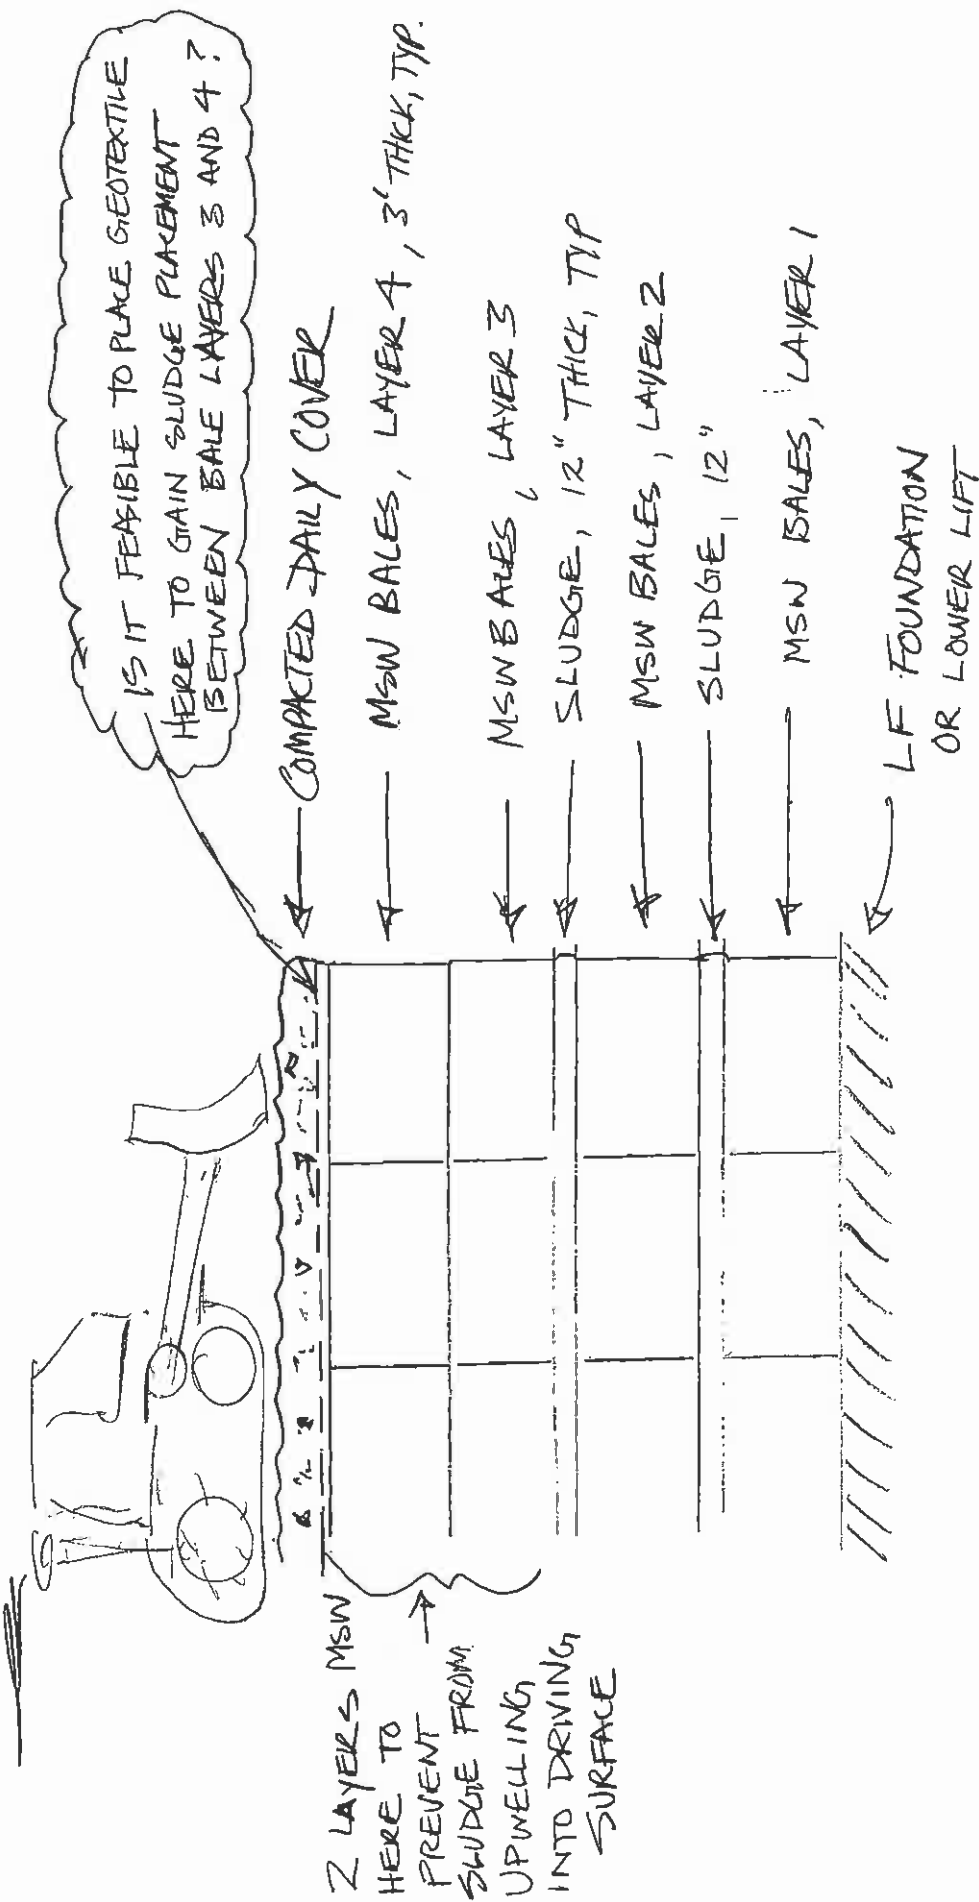 IS IT FEASIBLE TO PLACE GEOTEXTILE
HERE TO GAIN SLUDGE PLACEMENT
BETWEEN BALE LAYERS 3 AND 4?
COMPACTED DAILY COVER
MSW BALES, LAYER 4, 3' THICK, TYP.
MSW BALES, LAYER 3
SLUDGE, 12" THICK, TYP
MSW BALES, LAYER 2
SLUDGE, 12"
MSW BALES, LAYER 1
LF FOUNDATION
OR LOWER LIFT
2 LAYERS MSW
HERE TO
PREVENT
SLUDGE FROM
UPWELLING
INTO DRIVING
SURFACE